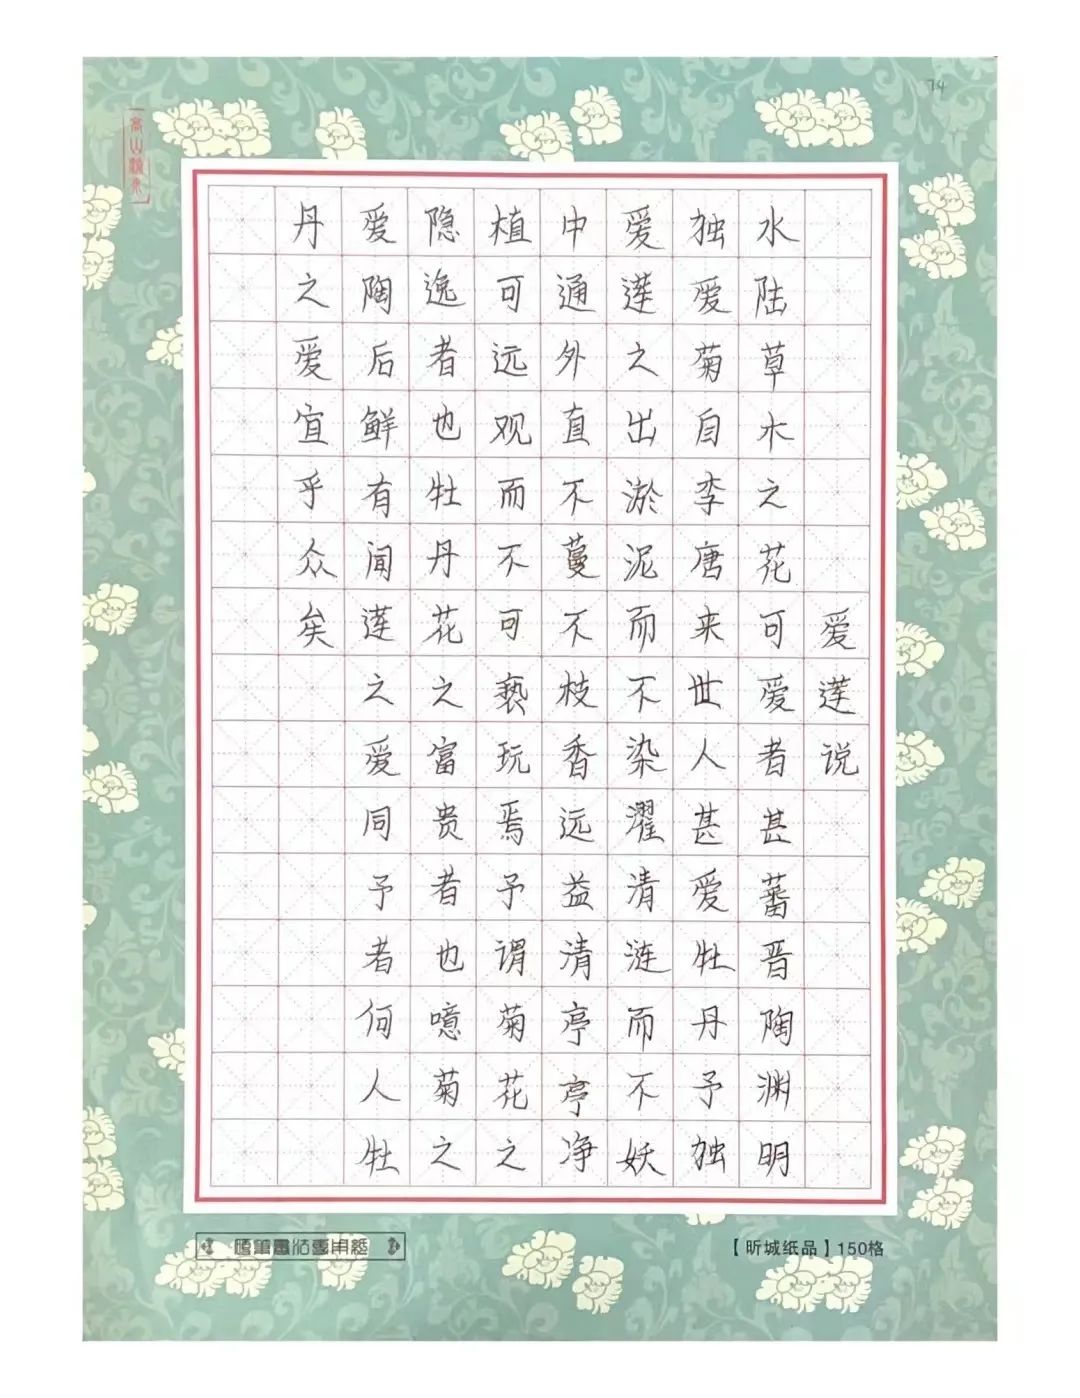 74
高山流水
爱莲说
水陆草木之花可爱者甚蕃晋陶渊明
独爱菊自李唐来世人甚爱牡丹予独
爱莲之出淤泥而不染濯清涟而不妖
中通外直不蔓不枝香远益清亭亭净
植可远观而不可亵玩焉予谓菊花之
隐逸者也牡丹花之富贵者也噫菊之
爱陶后鲜有闻莲之爱同予者何人牡
丹之爱宜乎众矣
硬筆書法專用紙
【昕城纸品】150格